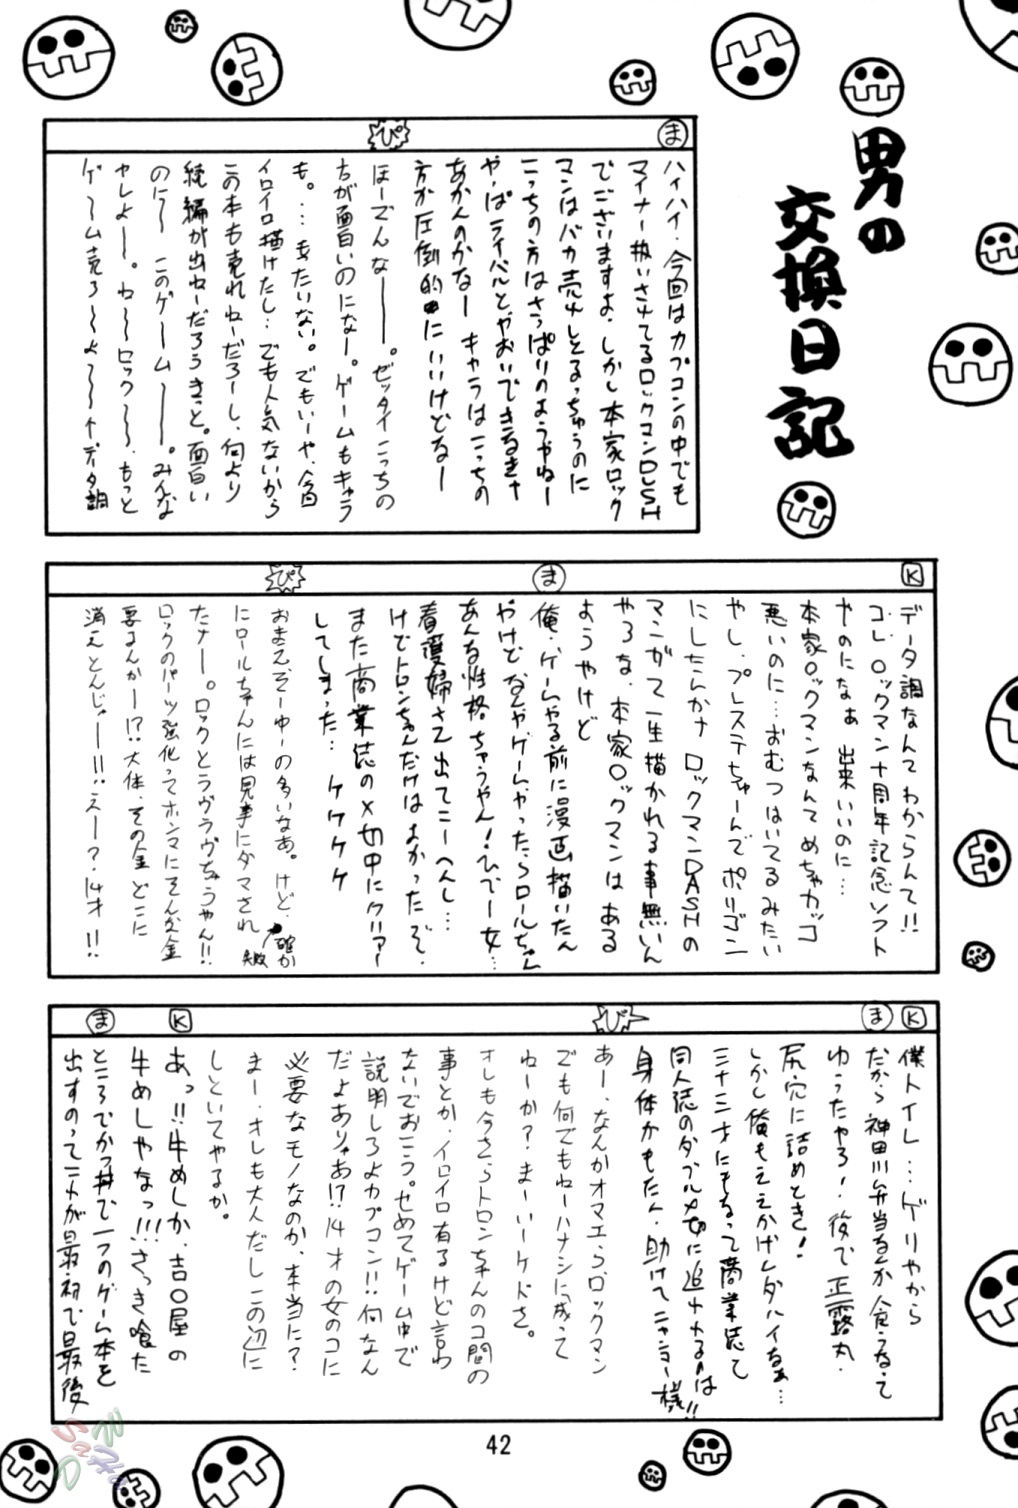 男の
交換日記
ま
ハイハイ、今回はカプコンの中でも
マイナー扱いされてるロックマンDASH
でございますよ。しかし本家ロック
マンはバカ売れしとるっちゅうのに
こっちの方はさっぱりのようやねー
やっぱライバルとやおいできなきゃ
あかんのかなー キャラはこっちの
方が圧倒的にいいけどなー
ぴ
ほーでんなー。ゼッタイこっちの
方が面白いのになー。ゲームもキャラ
も。…もったいない。でもいーや、今回
イロイロ描けたし…でも人気ないから
この本も売れねーだろーし、何より
続編が出ねーだろうきっと。面白い
のに〜 このゲーム——。みんな
やれよ——。ね〜ロック〜〜、もっと
ゲ〜ーム売ろ〜よ〜〜 ↑データ調
K
データ調なんてわからんて!!
コレ、ロックマン十周年記念ソフト
やのになぁ 出来いいのに…
本家ロックマンなんてめちゃカッコ
悪いのに…おむつはいてるみたい
やし、プレステちゃーんでポリゴン
にしたんかナ ロックマンDASHの
マンガて一生描かれる事無いん
やろな、本家ロックマンはある
ようやけど
ま
俺、ゲームやる前に漫画描いたん
やけどなんやゲームやったらロールちゃん
あんな性格ちゃうやん!ひでー女…
看護婦さん出てこーへんし…
けどトロンちゃんだけはよかったぞ。
また商業誌の〆切中にクリアー
してしまった… ケケケケ
ぴ
おまえぞーゆーの多いなあ。けど、確か
にロールちゃんには見事にダマされ
たナー。ロックとラヴラヴちゃうやん!!
ロックのパーツ強化ってホンマにそんな金
要るんかー!?大体、その金どこに
消えとんじゃー!!…えー?、14才!!
K
僕トイレ…ゲリやから
ま
だから神田川弁当なんか食うなって
ゆうたやろ!、後で正露丸、
尻穴に詰めとき!
しかし俺もええかげんダハイなぁ…
三十三才にもなって商業誌て
同人誌のダブル〆切に追われるのは!!
身体がもたん、助けてニャンコー様!!
ぴ
あー、なんかオマエら、ロックマン
でも何でもねーハナシに成って
ねーか?まーいーケドさ。
オレも今さらトロンちゃんのコ間の
事とか、イロイロ有るけど言わ
ないでおこう。せめてゲーム中で
説明しろよカプコン!!何なん
だよありゃあ!?14才の女のコに
必要なモノなのか、本当に?
まー、オレも大人だしこの辺に
しといてやるか。
K
あっ!!牛めしか、吉○屋の
牛めしやなっ!!!さっき喰た
ま
ところでかつ丼で一つのゲーム本を
出すのってコレが最初で最後
42